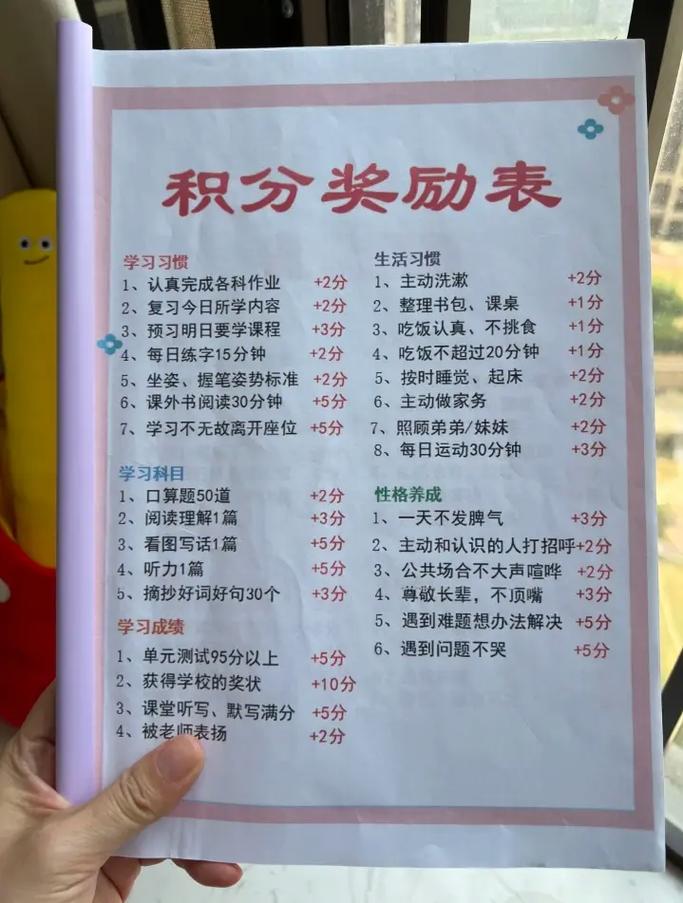 积分奖励表
学习习惯
1、认真完成各科作业 +2分
2、复习今日所学内容 +2分
3、预习明日要学课程 +3分
4、每日练字15分钟 +2分
5、坐姿、握笔姿势标准 +2分
6、课外书阅读30分钟 +5分
7、学习不无故离开座位 +5分
学习科目
1、口算题50道 +2分
2、阅读理解1篇 +3分
3、看图写话1篇 +5分
4、听力1篇 +5分
5、摘抄好词好句30个 +3分
学习成绩
1、单元测试95分以上 +5分
2、获得学校的奖状 +10分
3、课堂听写、默写满分 +5分
4、被老师表扬 +2分
生活习惯
1、主动洗漱 +2分
2、整理书包、课桌 +1分
3、吃饭认真、不挑食 +1分
4、吃饭不超过20分钟 +1分
5、按时睡觉、起床 +2分
6、主动做家务 +2分
7、照顾弟弟/妹妹 +2分
8、每日运动30分钟 +3分
性格养成
1、一天不发脾气 +3分
2、主动和认识的人打招呼+2分
3、公共场合不大声喧哗 +2分
4、尊敬长辈，不顶嘴 +3分
5、遇到难题想办法解决 +5分
6、遇到问题不哭 +5分